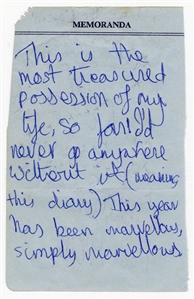 MEMORANDA
This is the
most treasured
possession of my
life, so far! I'd
never go anywhere
without it (meaning
this diary) This year
has been marvellous,
simply marvellous